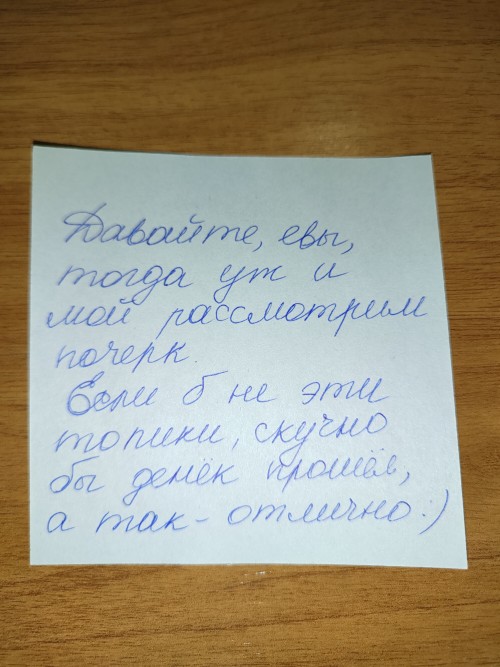 Давайте, евы,
тогда уж и
мой рассмотрим
почерк.
Если б не эти
топики, скучно
бы денёк прошёл,
а так - отлично:)